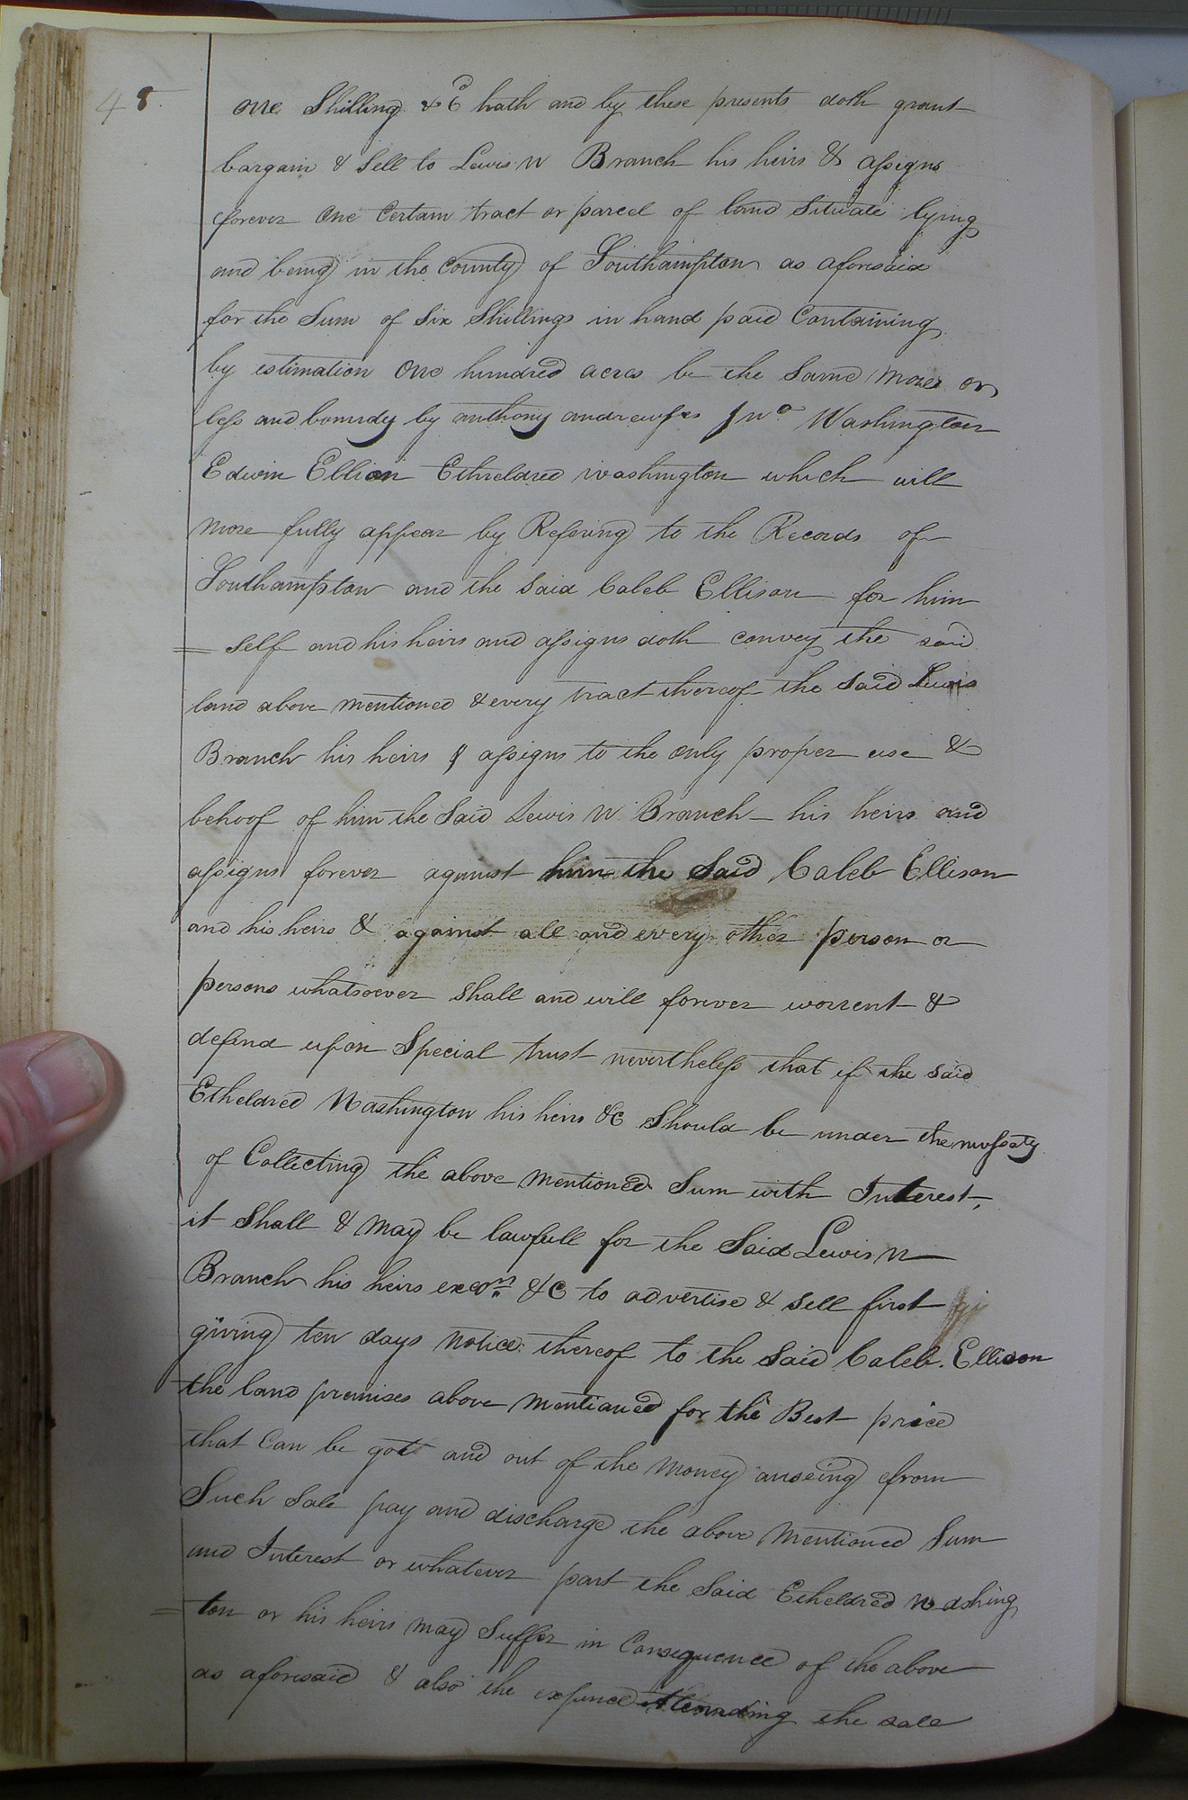 48
one Shilling &C hath and by these presents doth grant
bargain & Sell to Lewis W Branch his heirs & assigns
forever One Certain tract or parcel of land Situate lying
and being in the County of Southampton as aforesaid
for the Sum of Six Shillings in hand paid Containing
by estimation One hundred acres be the Same More or
less and boundy by anthony andrewses Jno Washington
Edwin Ellison Etheldred Washington which will
More fully appear by Refering to the Records of
Southampton and the Said Caleb Ellison for him
= Self and his heirs and assigns doth convey the said
land above mentioned & every tract thereof the Said Lewis
Branch his heirs & assigns to the only proper use &
behoof of him the Said Lewis W Branch his heirs and
assigns forever against him the Said Caleb Ellison
and his heirs & against all and every other person or
persons whatsoever Shall and will forever worrent &
defend upon Special trust nevertheless that if the said
Etheldred Washington his heirs &C Should be under the
of Collecting the above Mentioned Sum with Interest,
it Shall & May be lawfull for the Said Lewis W
Branch his heirs exors &C to advertise & Sell first gi
giving ten days Notice thereof to the Said Caleb Ellison
the land premises above Mentioned for the Best price
that Can be got and out of the Money from
Such Sale pay and discharge the above Mentioned Sum
and Interest or whatever part the Said Etheldred Washing
= ton or his heirs May Suffer in Consequence of the above
as aforesaid & also the expence Attending the sale